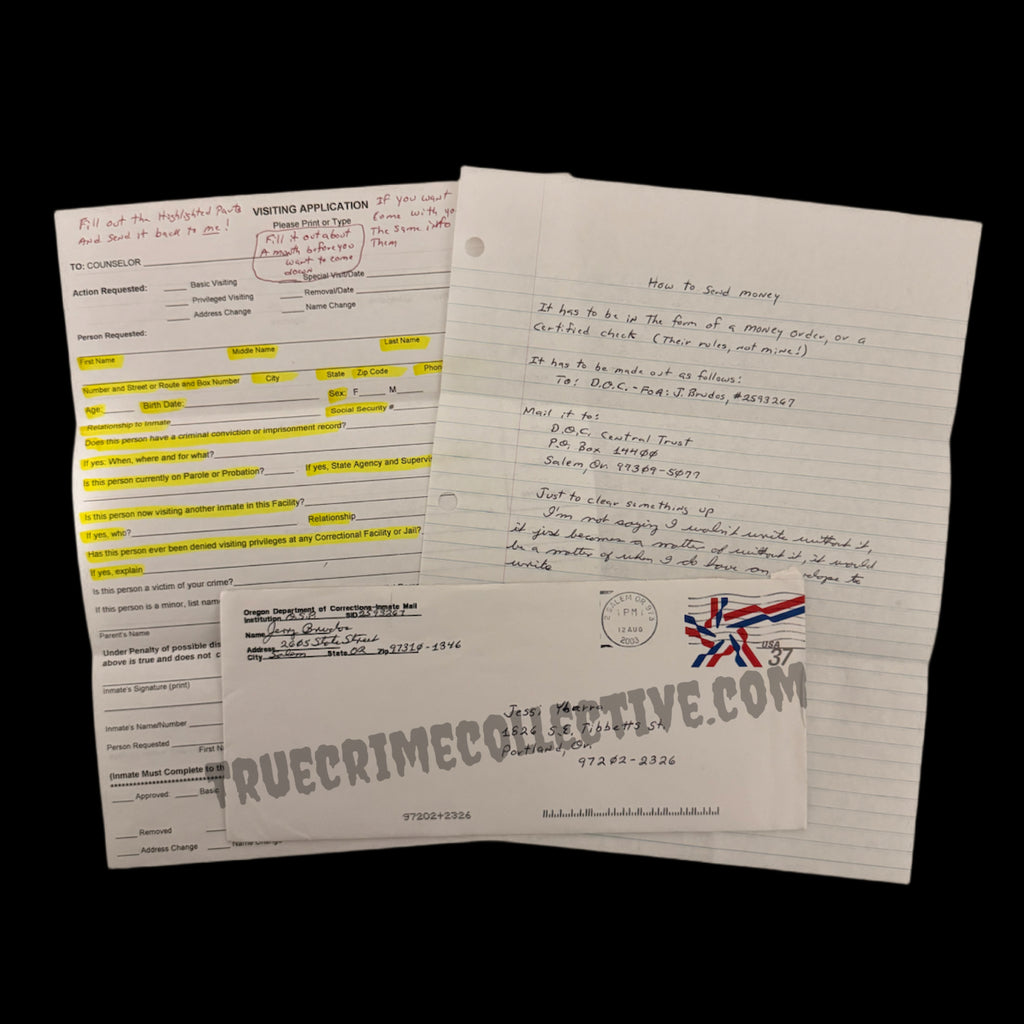 Fill out the Highlighted Parts
And send it back to me!
VISITING APPLICATION
Please Print or Type
If you want
Come with yo
The same info
Them
Fill it out about
A month before you
want to come
down
TO: COUNSELOR
Action Requested:
Basic Visiting
Special Visit/Date
Privileged Visiting
Removal/Date
Address Change
Name Change
Person Requested:
First Name
Middle Name
Last Name
Number and Street or Route and Box Number
City
State
Zip Code
Phon
Age:
Birth Date:
Sex: F
M
Relationship to Inmate
Social Security #
Does this person have a criminal conviction or imprisonment record?
If yes: When, where and for what?
Is this person currently on Parole or Probation?
If yes, State Agency and Supervis
Is this person now visiting another inmate in this Facility?
If yes, who?
Relationship
Has this person ever been denied visiting privileges at any Correctional Facility or Jail?
If yes, explain
Is this person a victim of your crime?
If this person is a minor, list name
Parent's Name
Under Penalty of possible dis
above is true and does not c
Inmate's Signature (print)
Inmate's Name/Number
Person Requested
First N
(Inmate Must Complete to th
Approved
Basic
Removed
Address Change
Name Change
How to Send money
It has to be in The form of a money order, or a
Certified check (Their rules, not mine!)
It has to be made out as follows:
TO: D.O.C. - FOR: J. Brudos, #2593267
Mail it to:
D.O.C. Central Trust
P.O. Box 14400
Salem, Or. 97309-5077
Just to clear something up
I'm not saying I won't write without it,
it just becomes a matter of without it, it would
be a matter of when I do have an
to
write
Oregon Department of Corrections-Inmate Mail
Institution O.S.P. SID 2593267
Name Jerry Brudos
Address 2605 State Street
City Salem State OR Zip 97310-1346
SALEM OR 973
PM
12 AUG
2003
USA
37
Jessi Ybarra
1526 S.E. Tibbetts St.
Portland, Or.
97202-2326
TRUECRIMECOLLECTIVE.COM
97202+2326